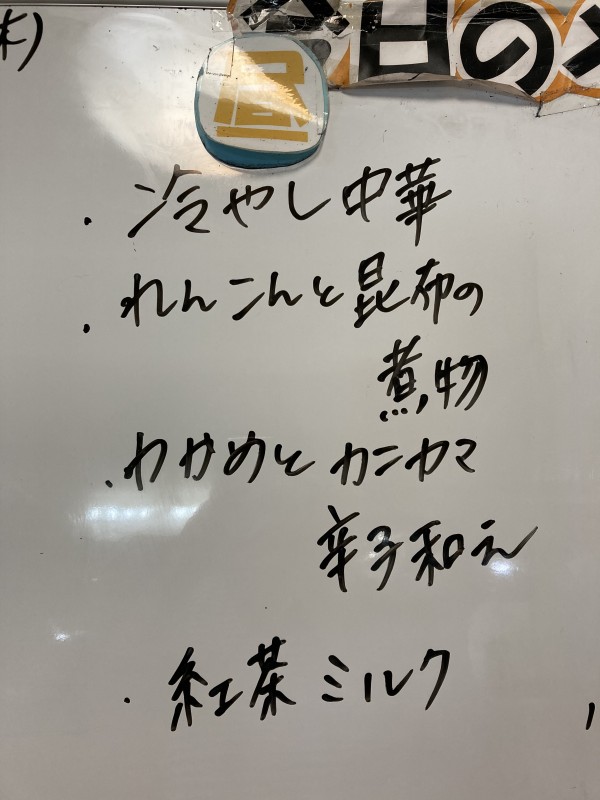 木)
今日のメ
昼
・冷やし中華
・れんこんと昆布の
煮物
・わかめとカニカマ
辛子和え
・紅茶ミルク